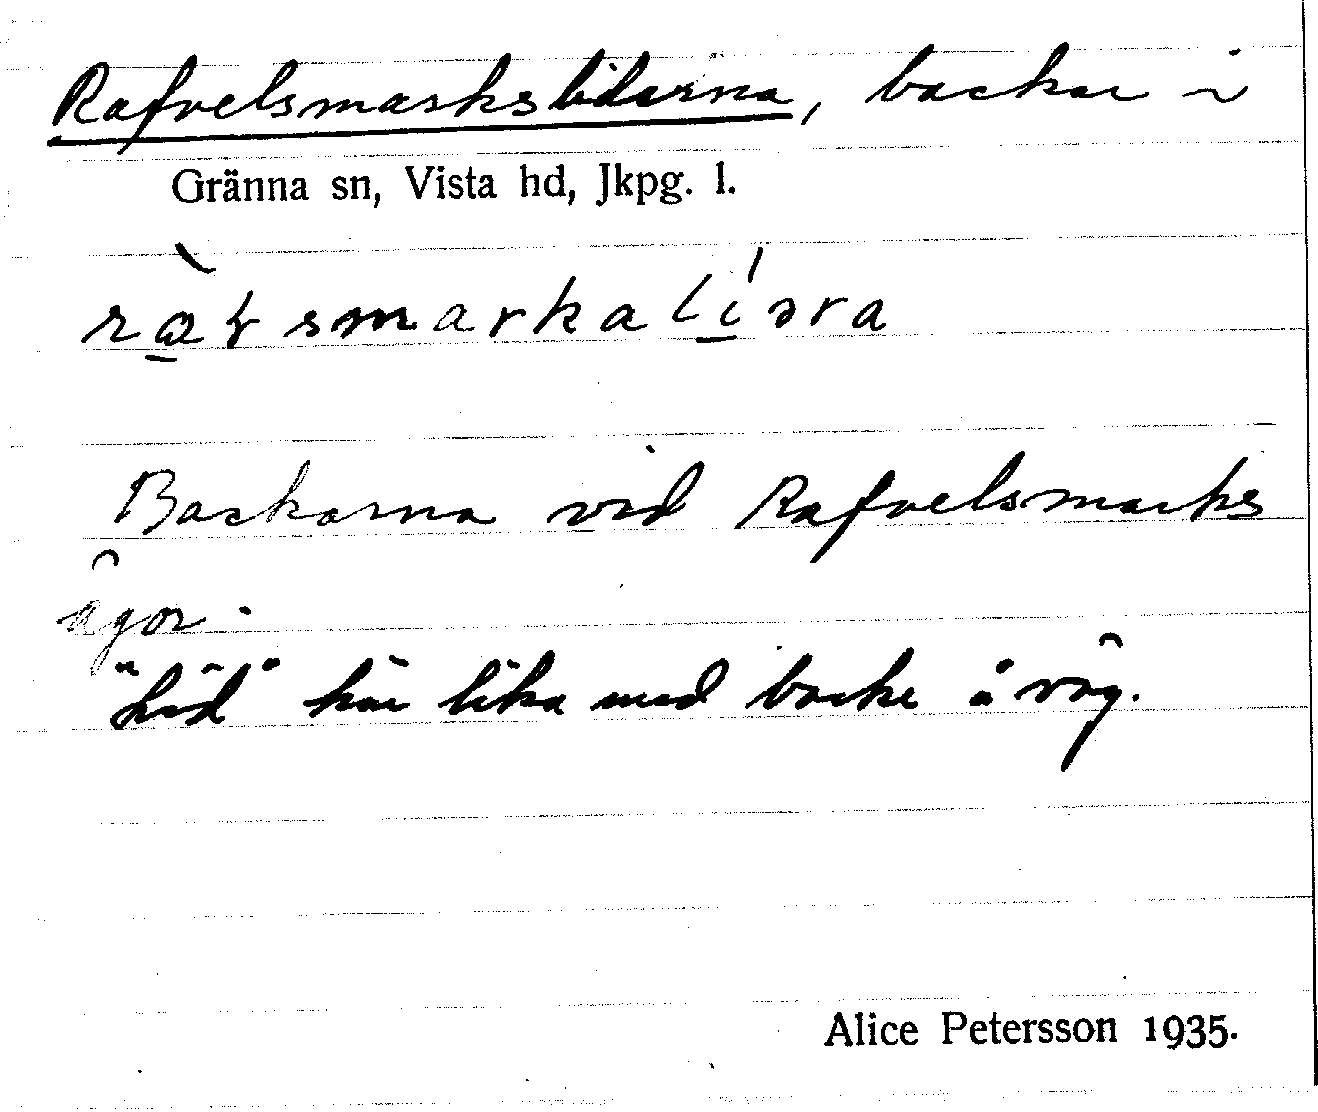 Rafvelsmarkslidarna, backar i
Gränna sn, Vista hd, Jkpg. l.
Backarna vid Rafvelsmarks
ägor.
"Lid" här lika med backe å väg.
Alice Petersson 1935.